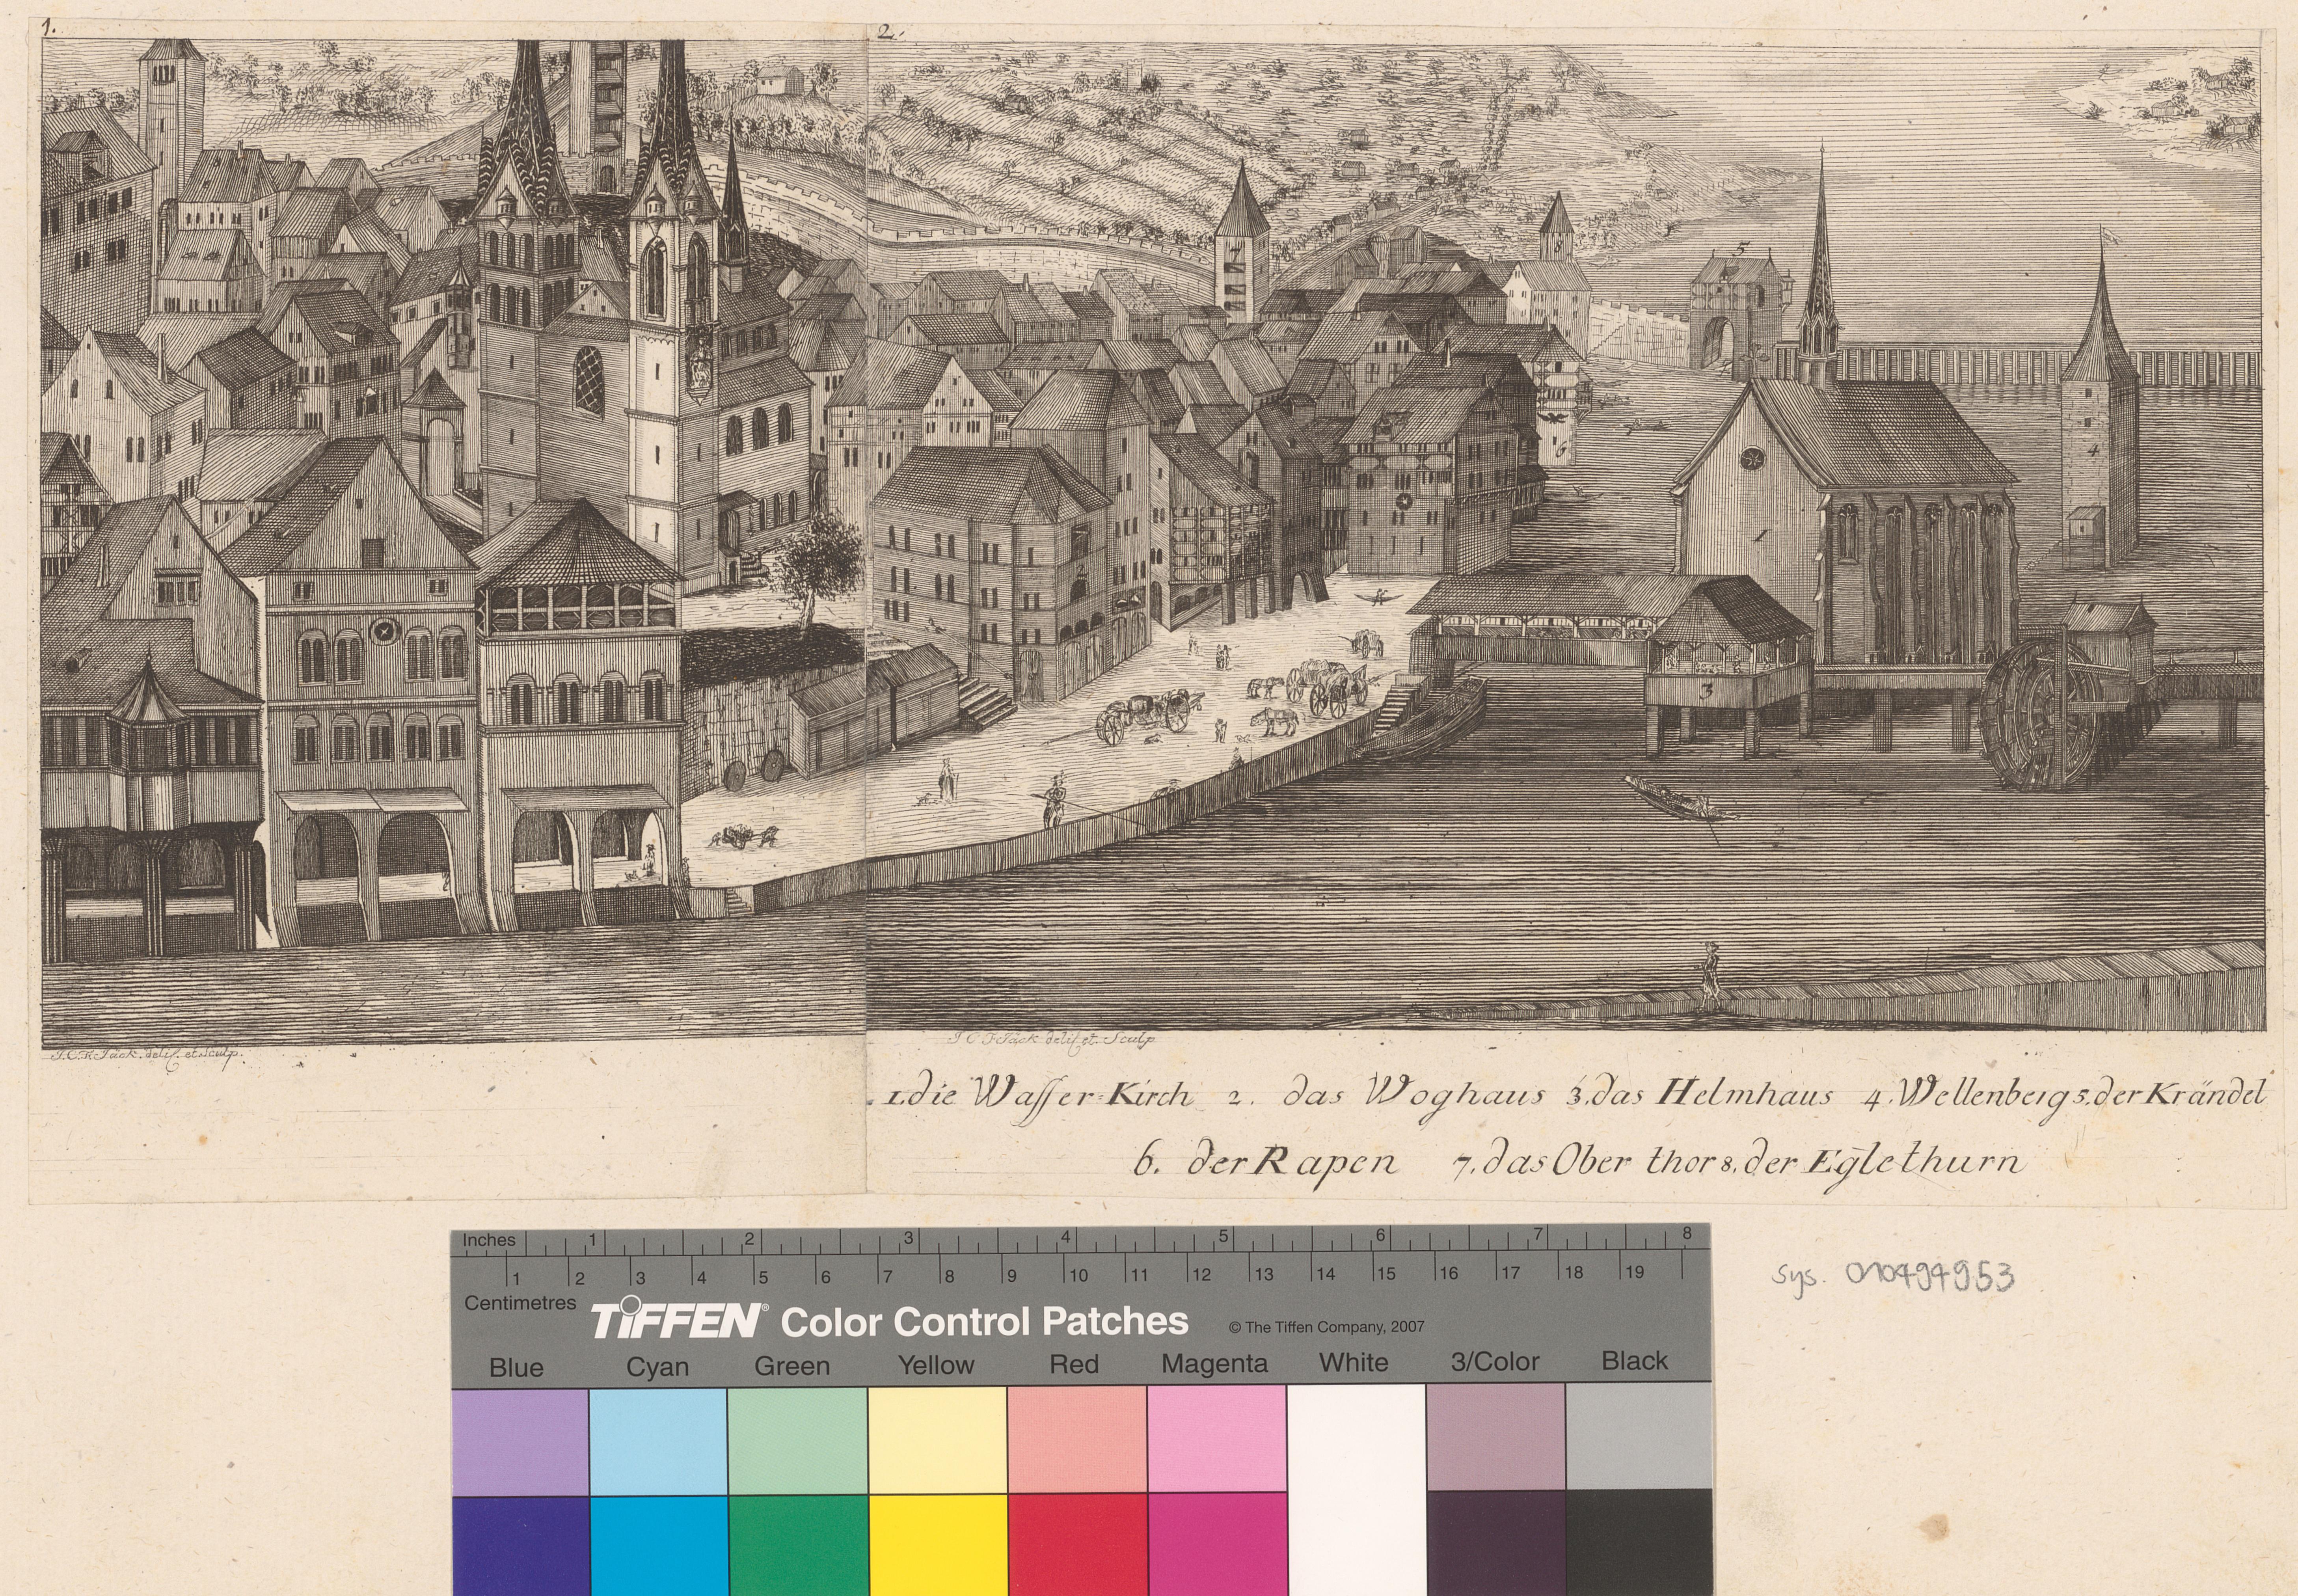 1.
2.
7
8
5
6
4
1
2
3
J. C. F. Fäck. deli. et. Sculp.
J C F Fäck deli. et. Sculp
1. die Waſſer=Kirch 2. das Woghaus 3. das Helmhaus 4. Wellenberg 5. der Krändel
6. der Rapen 7. das Ober thor 8. der Eglethurn
Inches 1 2 3 4 5 6 7 8
1 2 3 4 5 6 7 8 9 10 11 12 13 14 15 16 17 18 19
Centimetres
TIFFEN® Color Control Patches © The Tiffen Company, 2007
Blue Cyan Green Yellow Red Magenta White 3/Color Black
sys. 010494953